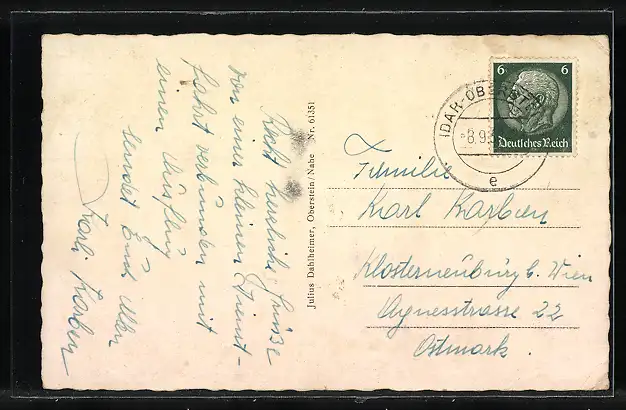 Recht herzliche Grüsse
von einer kleinen Dienst-
fahrt verbunden mit
einen Ausflug
sendet Euch allen
Karl Karben
Julius Dahlheimer, Oberstein/Nahe Nr. 61351
6 6
Deutsches Reich
IDAR-OBERST
8.9.
e
Familie
Karl Karben
Klosterneuburg b. Wien
Agnesstrasse 22
Ostmark.